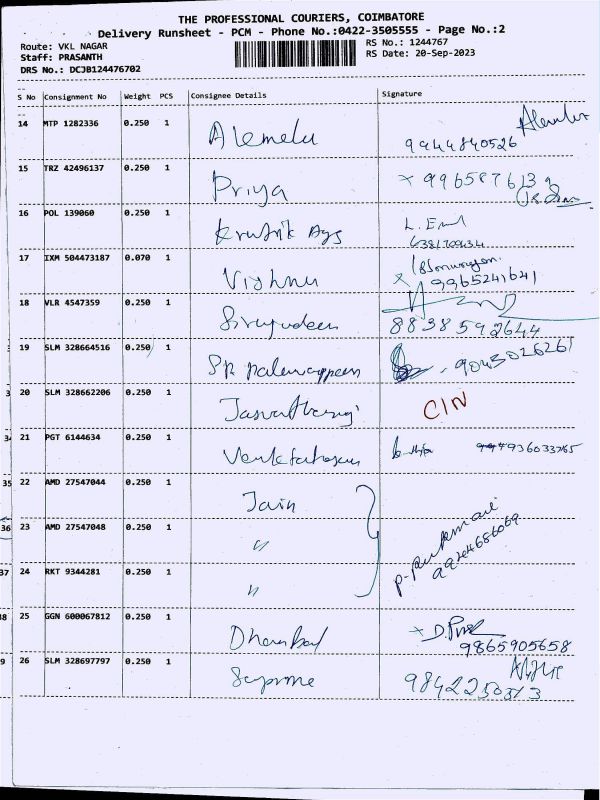 THE PROFESSIONAL COURIERS, COIMBATORE
Delivery Runsheet - PCM - Phone No.:0422-3505555 - Page No.:2
Route: VKL NAGAR
RS No.: 1244767
Staff: PRASANTH
RS Date: 20-Sep-2023
DRS No.: DCJB124476702
S No Consignment No Weight PCS Consignee Details Signature
14 MTP 1282336 0.250 1 Alemelu 9944840526
15 TRZ 42496137 0.250 1 Priya
16 POL 139060 0.250 1
17 IXM 504473187 0.070 1 Vishnu 9965241641
18 VLR 4547359 0.250 1 8838592644
19 SLM 328664516 0.250 1 9043026261
20 SLM 328662206 0.250 1 CIN
21 PGT 6144634 0.250 1
22 AMD 27547044 0.250 1 Jain
23 AMD 27547048 0.250 1 "
24 RKT 9344281 0.250 1 "
25 GGN 600067812 0.250 1 9865905658
26 SLM 328697797 0.250 1 Supreme